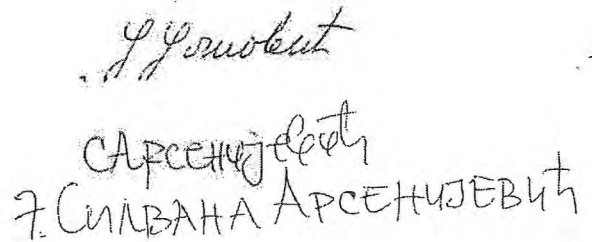 САрсенијевић
7. СИЛВАНА АРСЕНИЈЕВИЋ